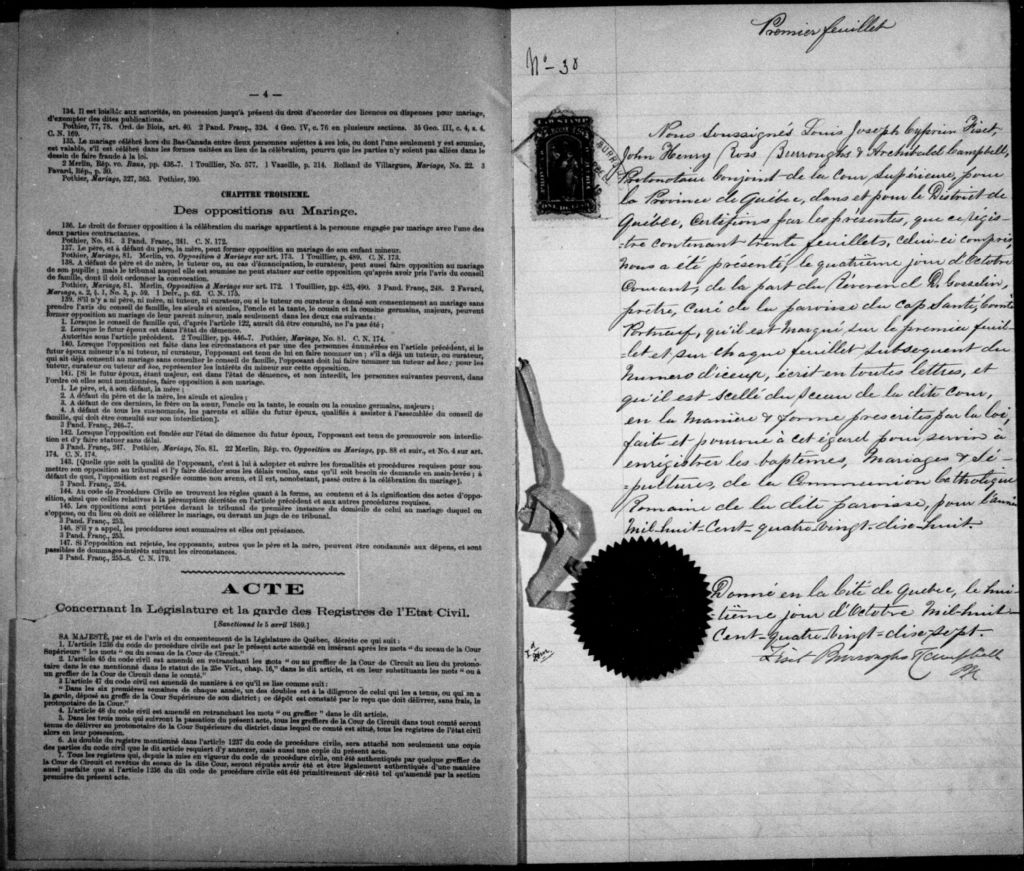 — 4 —
134. Il est loisible aux autorités, en possession jusqu'à présent du droit d'accorder des licences ou dispenses pour mariage,
d'exempter des dites publications.
Pothier, 77, 78. Ord. de Blois, art. 40. 2 Pand. Franç., 324. 4 Geo. IV, c. 76 en plusieurs sections. 35 Geo. III, c. 4, s. 4.
C. N. 169.
135. Le mariage célébré hors du Bas-Canada entre deux personnes sujettes à ses lois, ou dont l'une seulement y est soumise,
est valable, s'il est célébré dans les formes usitées au lieu de la célébration, pourvu que les parties n'y soient pas allées dans le
dessin de faire fraude à la loi.
2 Merlin, Rép. vo. Bans, pp. 435-7. 1 Touillier, No. 577. 1 Vazeille, p. 314. Rolland de Villargues, Mariage, No. 22. 3
Favard, Rép., p. 30.
Pothier, Mariage, 327, 363. Pothier, 390.
CHAPITRE TROISIEME.
Des oppositions au Mariage.
136. Le droit de former opposition à la célébration du mariage appartient à la personne engagée par mariage avec l'une des
deux parties contractantes.
Pothier, No. 81. 3 Pand. Franç., 241. C. N. 172.
137. Le père, et à défaut du père, la mère, peut former opposition au mariage de son enfant mineur.
Pothier, Mariage, 81. Merlin, vo. Opposition à Mariage sur art. 173. 1 Touillier, p. 489. C. N. 173.
138. A défaut de père et de mère, le tuteur ou, au cas d'émancipation, le curateur, peut aussi faire opposition au mariage
de son pupille; mais le tribunal auquel elle est soumise ne peut statuer sur cette opposition qu'après avoir pris l'avis du conseil de
famille, dont il doit ordonner la convocation.
Pothier, Mariage, 81. Merlin, Opposition à Mariage sur art. 172. 1 Touillier, pp. 425, 490. 3 Pand. Franç., 248. 2 Favard,
Mariage, s. 2, § 1, No. 3, p. 59. 1 Delv., p. 62. C. N. 175.
139. S'il n'y a ni père, ni mère, ni tuteur, ni curateur, ou si le tuteur ou curateur a donné son consentement au mariage sans
prendre l'avis du conseil de famille, les aïeuls et aïeules, l'oncle et la tante, le cousin et la cousine germains, majeurs, peuvent
former opposition au mariage de leur parent mineur, mais seulement dans les deux cas suivants:
1. Lorsque le conseil de famille qui, d'après l'article 122, aurait dû être consulté, ne l'a pas été;
2. Lorsque le futur époux est dans l'état de démence.
Autorités sous l'article précédent. 2 Touillier, pp. 446-7. Pothier, Mariage, No. 81. C. N. 174.
140. Lorsque l'opposition est faite dans les circonstances et par une des personnes énumérées en l'article précédent, si le
futur époux mineur n'a ni tuteur, ni curateur, l'opposant est tenu de lui en faire nommer un; s'il a déjà un tuteur, ou curateur,
qui ait déjà consenti au mariage sans consulter le conseil de famille, l'opposant doit lui faire nommer un tuteur ad hoc; pour les
tuteur, curateur ou tuteur ad hoc, représenter les intérêts du mineur sur cette opposition.
141. [Si le futur époux, étant majeur, est dans l'état de démence, et non interdit, les personnes suivantes peuvent, dans
l'ordre où elles sont mentionnées, faire opposition à son mariage.
1. Le père, et, à son défaut, la mère;
2. A défaut du père et de la mère, les aïeuls et aïeules;
3. A défaut de ces derniers, le frère ou la sœur, l'oncle ou la tante, le cousin ou la cousine germains, majeurs;
4. A défaut de tous les sus-nommés, les parents et alliés du futur époux, qualifiés à assister à l'assemblée du conseil de
famille, qui doit être consulté sur son interdiction].
3 Pand. Franç., 246-7.
142. Lorsque l'opposition est fondée sur l'état de démence du futur époux, l'opposant est tenu de promouvoir son interdic-
tion et d'y faire statuer sans délai.
3 Pand. Franç., 247. Pothier, Mariage, No. 81. 22 Merlin, Rép. vo. Opposition au Mariage, pp. 88 et suiv., et No. 4 sur art.
174. C. N. 174.
143. [Quelle que soit la qualité de l'opposant, c'est à lui à adopter et suivre les formalités et procédures requises pour sou-
mettre son opposition au tribunal et l'y faire décider sous les délais voulus, sans qu'il soit besoin de demande en main-levée; à
défaut de quoi, l'opposition est regardée comme non avenu, et il est, nonobstant, passé outre à la célébration du mariage].
3 Pand. Franç., 254.
144. Au code de Procédure Civile se trouvent les règles quant à la forme, au contenu et à la signification des actes d'oppo-
sition, ainsi que celles relatives à la péremption décrétée en l'article précédent et aux autres procédures requises.
145. Les oppositions sont portées devant le tribunal de première instance du domicile de celui au mariage duquel on
s'oppose, ou du lieu où doit se célébrer le mariage, ou devant un juge de ce tribunal.
3 Pand. Franç., 253.
146. S'il y a appel, les procédures sont sommaires et elles ont préséance.
3 Pand. Franç., 253.
147. Si l'opposition est rejetée, les opposants, autres que le père et la mère, peuvent être condamnés aux dépens, et sont
passibles de dommages-intérêts suivant les circonstances.
3 Pand. Franç., 255-6. C. N. 179.
ACTE
Concernant la Législature et la garde des Registres de l'Etat Civil.
[Sanctionné le 5 avril 1869.]
SA MAJESTÉ, par et de l'avis et du consentement de la Législature de Québec, décrète ce qui suit:
1. L'article 1236 du code de procédure civile est par le présent acte amendé en insérant après les mots "du sceau de la Cour
Supérieure" les mots "ou du sceau de la Cour de Circuit."
2. L'article 45 du code civil est amendé en retranchant les mots "ou au greffier de la Cour de Circuit au lieu du protono-
taire dans le cas mentionné dans le statut de la 25e Vict., chap. 16," dans le dit article, et en leur substituants les mots "ou à
un greffier de la Cour de Circuit dans le comté."
3 L'article 47 du code civil est amendé de manière à ce qu'il se lise comme suit:
"Dans les six premières semaines de chaque année, un des doubles est à la diligence de celui qui les a tenus, ou qui en a
la garde, déposé au greffe de la Cour Supérieure de son district; ce dépôt est constaté par le reçu que doit délivrer, sans frais, le
protonotaire de la Cour."
4. L'article 48 du code civil est amendé en retranchant les mots "ou greffier" dans le dit article.
5. Dans les trois mois qui suivront la passation du présent acte, tous les greffiers de la Cour de Circuit dans tout comté seront
tenus de délivrer au protonotaire de la Cour Supérieure du district dans lequel ce comté est situé, tous les registres de l'état civil
alors en leur possession.
6. Au double du registre mentionné dans l'article 1237 du code de procédure civile, sera attaché non seulement une copie
des parties du code civil que le dit article requiert d'y annexer, mais aussi une copie du présent acte.
7. Tous les registres qui, depuis la mise en vigueur du code de procédure civile, ont été authentiqués par quelque greffier de
la Cour de Circuit et revêtus du sceau de la dite Cour, seront réputés avoir été et être légalement authentiqués d'une manière
aussi parfaite que si l'article 1236 du dit code de procédure civile eût été primitivement décrété tel qu'amendé par la section
première du présent acte.
Premier feuillet
No- 38
Nous soussignés Louis Joseph Cyprien Fiset,
John Henry Ross Burroughs & Archibald Campbell,
Protonotaire Conjoint de la Cour Supérieure, pour
la Province de Québec, dans et pour le District de
Québec, Certifions par les présentes, que ce régis-
tre contenant trente feuillets, celui-ci compris
nous a été présenté, le quatrième jour d'Octobre
Courant, de la part du Révérend D. Gosselin,
prêtre, Curé de la paroisse du Cap Santé, Comté
Portneuf, qu'il est marqué sur le premier feuil-
=let et sur chaque feuillet subséquent du
Numéro d'iceux, écrit en toutes lettres, et
qu'il est scellé du Sceau de la dite Cour,
en la manière & forme prescrites par la loi,
faite et pourvue à cet égard pour servir à
enrégistrer les baptêmes, Mariages & Sé-
=pultures, de la Communion Catholique
Romaine de la dite paroisse, pour l'année
Mil-huit-Cent-quatre vingt-dix-huit.
Donné en la Cité de Québec, le hui-
tième jour d'Octobre Mil-huit
Cent-Quatre vingt=dix sept.
Fiset Burroughs & Campbell